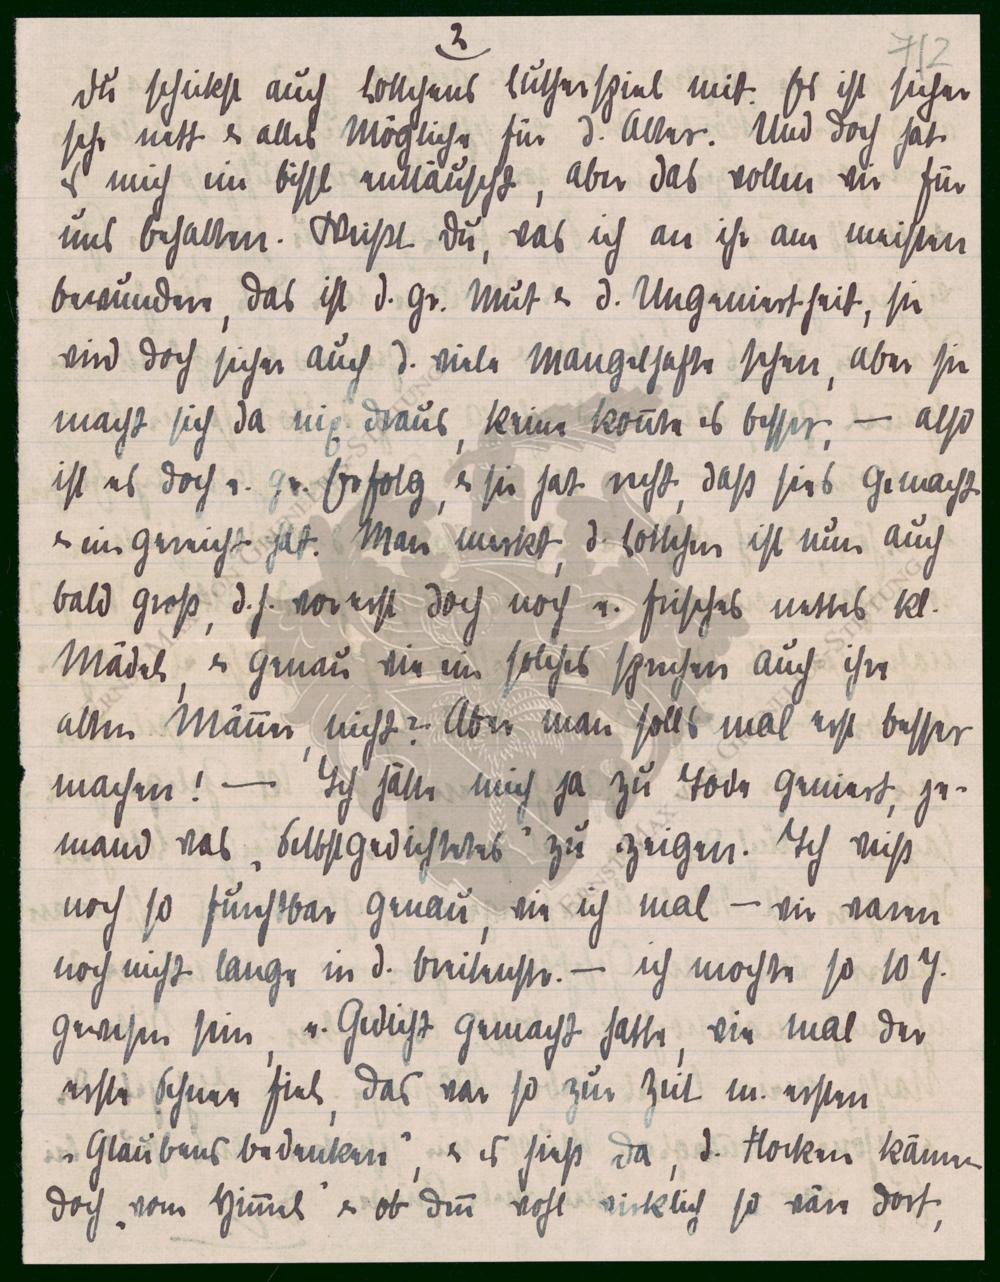 2
7/2
Du schickst auch Lottchens Lutherspiel mit. Es ist sicher
sehr nett & alles Mögliche für d. Alter. Und doch hat
es mich ein bissl enttäuscht, aber das wollen wir für
uns behalten. Weißt Du, was ich an ihr am meisten
bewundere, das ist d. gr. Mut & d. Ungeniertheit, sie
wird doch sicher auch d. viele Mangelhafte sehen, aber sie
macht sich da nix draus, keine kon̄te es besser, — also
ist es doch e. gr. Erfolg, & sie hat recht, daß sies gemacht
& eingereicht hat. Man merkt, d. Lottchen ist nun auch
bald groß, d.h. vorerst doch noch e. frisches nettes kl.
Mädel, & genau wie ein solches sprechen auch ihre
alten Män̄er, nicht? Aber man solls mal erst besser
machen! — Ich hätte mich ja zu Tode geniert, je-
mand was „Selbstgedichtetes" zu zeigen. Ich weiß
noch so furchtbar genau, wie ich mal — wir waren
noch nicht lange in d. Breitenstr. — ich mochte so 10 J.
gewesen sein, e. Gedicht gemacht hatte, wie mal der
erste Schnee fiel, das war so zur Zeit m. ersten
„Glaubensbedenken", & es hieß da, d. Flocken kämen
doch „vom Him̄el" & ob den̄ wohl wirklich so wäre dort,